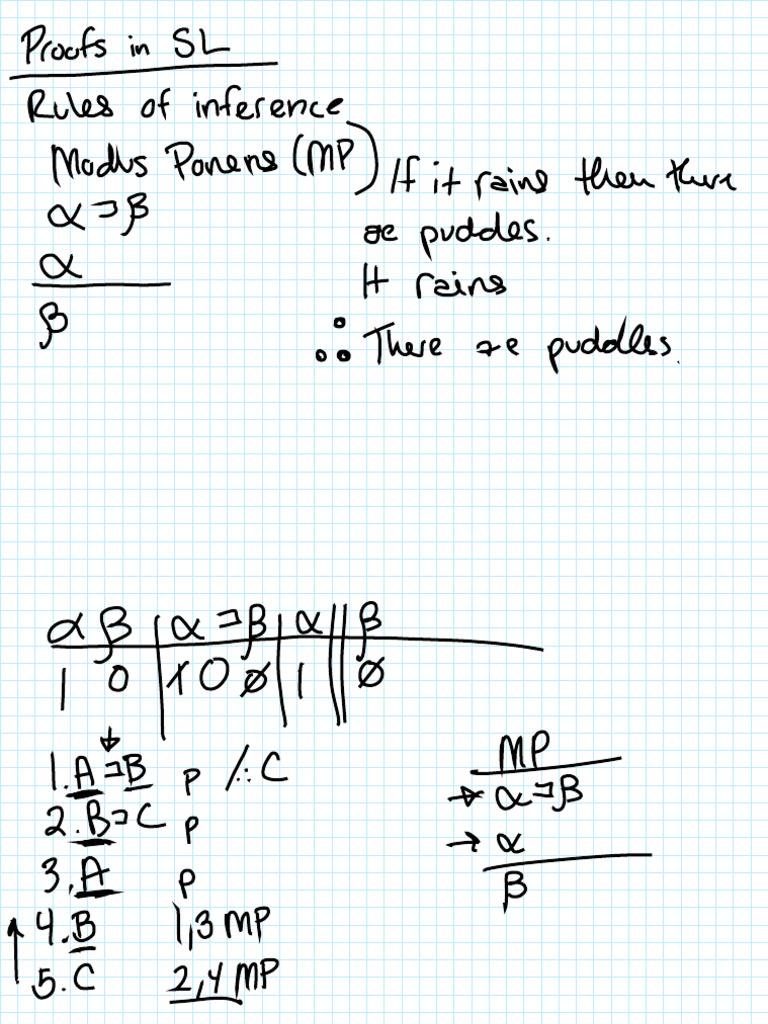 Proofs in SL
Rules of inference
Modus Ponens (MP)
α ⊃ β
α
β
If it rains then there
are puddles.
It rains
∴ There are puddles.
α β | α ⊃ β | α || β
1 0 | 1 0 0 | 1 || 0
1. A ⊃ B p /∴ C
2. B ⊃ C p
3. A p
4. B 1,3 MP
5. C 2,4 MP
MP
→ α ⊃ β
→ α
β